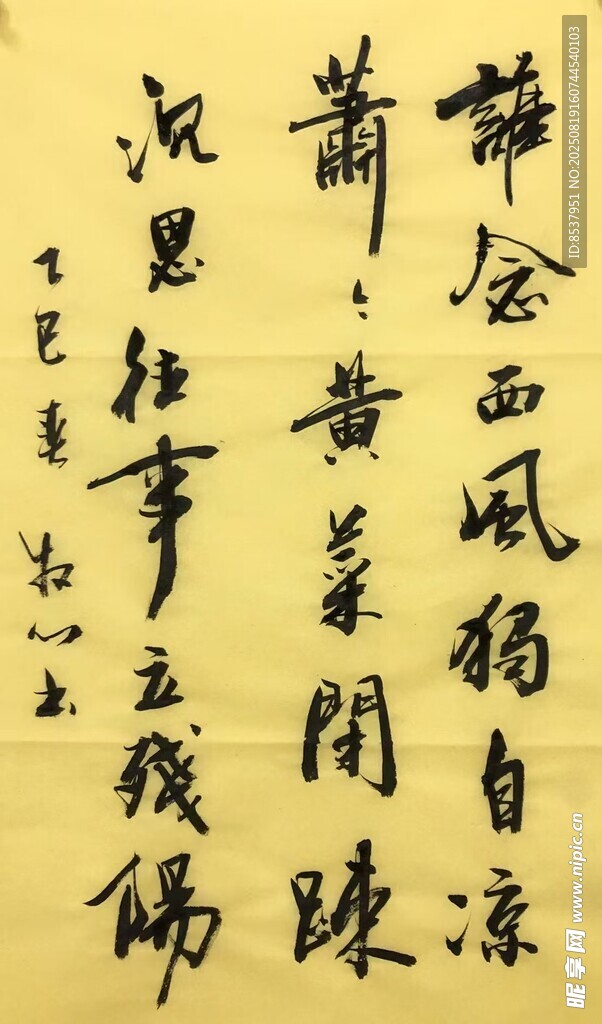 誰念西風獨自凉
蕭〻黃葉閉疎
沉思往事立殘陽
乙巳春 牧心书
ID:8537951 NO:20250819160744540103
昵享网 www.nipic.cn